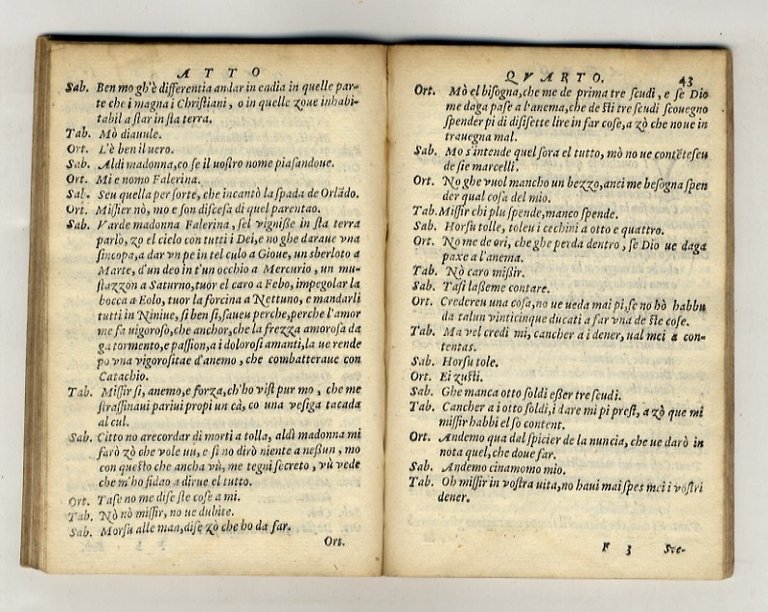 ATTO
Sab. Ben mo gh'è differentia andar in cadia in quelle par-
te che i magna i Christiani, o in quelle zoue inhabi-
tabil a star in sta terra.
Tab. Mò diauule.
Ort. L'è ben il uero.
Sab. Aldi madonna, co se il uostro nome piasandoue.
Ort. Mi e nomo Falerina.
Sab. Seu quella per sorte, che incantò la spada de Orlãdo.
Ort. Missier nò, mo e son discesa di quel parentao.
Sab. Varde madonna Falerina, sel vignisse in sta terra
parlo, zo el cielo con tutti i Dei, e no ghe daraue vna
sincopa, a dar vn pe in tel culo a Gioue, un sberloto a
Marte, d'un deo in t'un occhio a Mercurio, un mu-
stazzon a Saturno, tuor el caro a Febo, impegolar la
bocca a Eolo, tuor la forcina a Nettuno, e mandarli
tutti in Niniue, si ben si, saueu perche, perche l'amor
me fa uigoroso, che anchor, che la frezza amorosa da
ga tormento, e passion, a i dolorosi amanti, la ue rende
po vna vigorositae d'anemo, che combatteraue con
Catachio.
Tab. Missir si, anemo, e forza, ch'ho vist pur mo, che me
strassinaui pariui propi un cà, co una vesiga tacada
al cul.
Sab. Citto no arecordar di morti a tolla, aldi madonna mi
farò zò che vole uu, e si no dirò niente a nessun, mo
con questo che ancha vù, me tegni secreto, vù vede
che m'ho fidao a dirue el tutto.
Ort. Tase no me dise ste cose a mi.
Tab. Nò nò missir, no ue dubite.
Sab. Morsu alle man, dise zò che ho da far.
Ort.
QVARTO. 43
Ort. Mò el bisogna, che me de prima tre scudi, e se Dio
me daga pase a l'anema, che de sti tre scudi scouegno
spender pi di disisette lire in far cose, a zò che no ue in
trauegna mal.
Sab. Mo s'intende quel sora el tutto, mò no ue contẽteseu
de sie marcelli.
Ort. No ghe vuol mancho un bezzo, anci me besogna spen
der qual cosa del mio.
Tab. Missir chi plu spende, manco spende.
Sab. Horsu tolle, toleu i cechini a otto e quattro.
Ort. No me de ori, che ghe perda dentro, se Dio ue daga
paxe a l'anema.
Tab. Nò caro missir.
Sab. Tasi lasseme contare.
Ort. Credereu una cosa, no ue ueda mai pi, se no hò habbu
da talun vinticinque ducati a far vna de ste cose.
Tab. Ma vel credi mi, cancher a i dener, ual mei a con-
tentas.
Sab. Horsu tole.
Ort. Ei zusti.
Sab. Ghe manca otto soldi esser tre scudi.
Tab. Cancher a i otto soldi, i dare mi pi prest, a zò que mi
missir habbi el so content.
Ort. Andemo qua dal spicier de la nuncia, che ue darò in
nota quel, che doue far.
Sab. Andemo cinamomo mio.
Tab. Oh missir in vostra uita, no haui mai spes mei i vostri
dener.
F 3